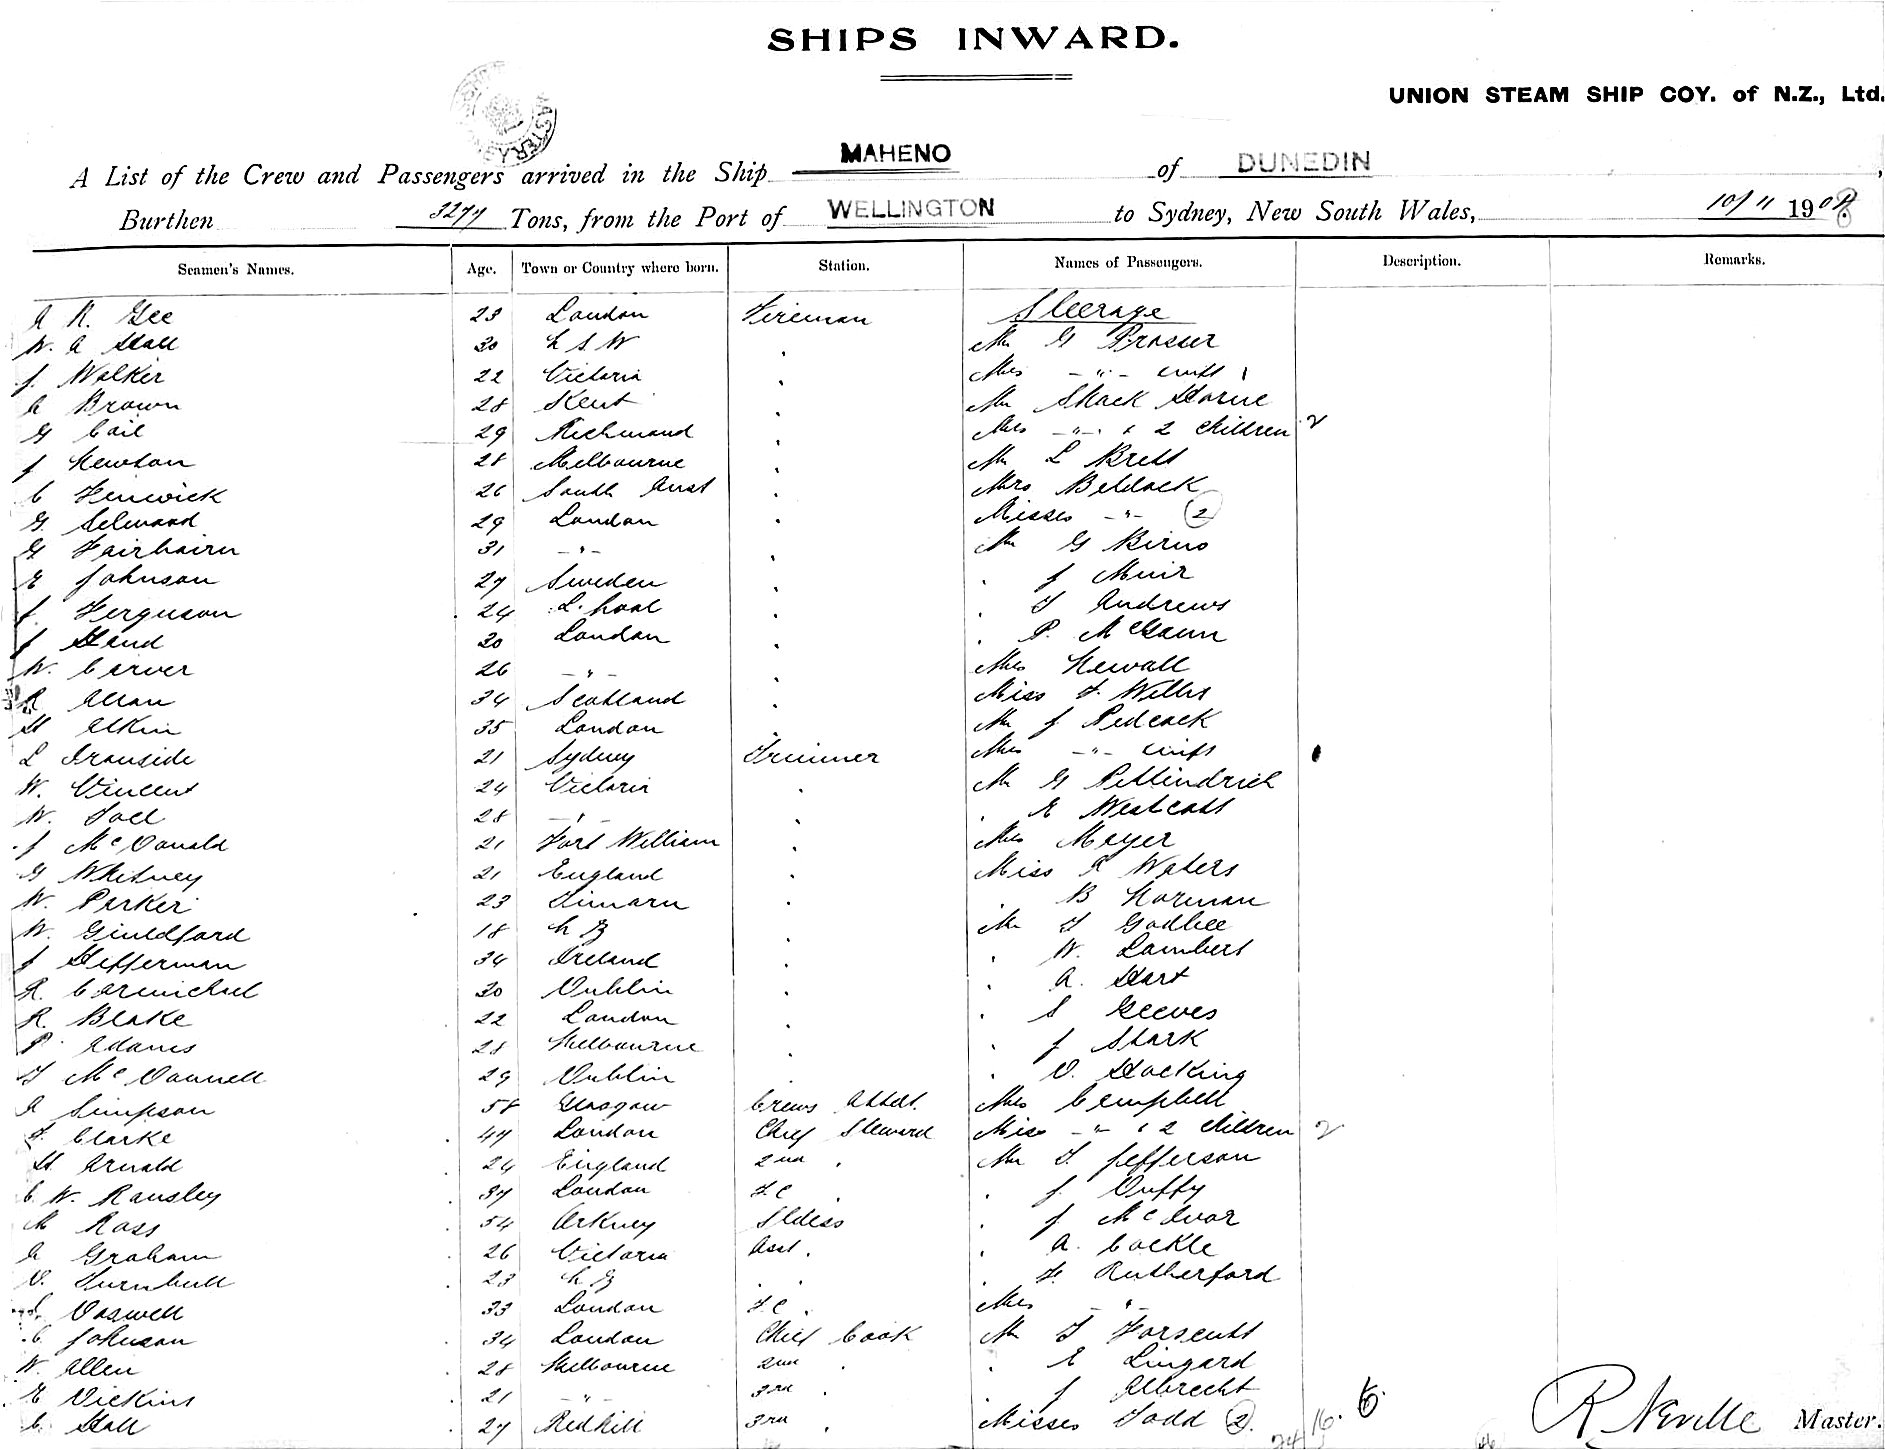 SHIPS INWARD.
UNION STEAM SHIP COY. of N.Z., Ltd.
A List of the Crew and Passengers arrived in the Ship MAHENO of DUNEDIN,
Burthen 3277 Tons, from the Port of WELLINGTON to Sydney, New South Wales, 10/11 1908
Seamen's Names. Age. Town or Country where born. Station. Names of Passengers. Description. Remarks.
A R. Gee 23 London Fireman Steerage
W. A Hall 30 N S W " Mr G Prosser
J. Walker 22 Victoria " Mrs - " - 
A Brown 28 Kent " Mr Shack Horne
G Cail 29 Richmond " Mrs - " - & 2 Children 2
J Newton 28 Melbourne " Mr L Brett
C Fenwick 26 South Aust " Mrs Beldock
G. Selwood 29 London " Misses - " - 2
G Fairbairn 31 - " - " Mr G Birno
E Johnson 27 Sweden " " J Muir
J. Ferguson 24 L. pool " " T Andrews
J Hand 30 London " " P. McGann
W. Carver 26 - " - " Mrs Newall
R Allan 34 Scotland " Miss F. Willis
H Atkin 35 London " Mr J Pedcock
L Ironside 21 Sydney Trimmer Mrs - " -
W. Vincent 24 Victoria " Mr G Pettindrich
W. Toll 28 - " - " " E Westcott
J McDonald 21 Fort William " Mrs Meyer
G Whitney 21 England " Miss R Waters
W. Parker 23 Timaru " " B Norman
W. Guildford 18 N Z " Mr T Godbee
J Hefferman 34 Ireland " " W. Lambert
R. Carmichael 30 Dublin " " A. Hart
R. Blake 22 London " " S Geeves
P. Adams 28 Melbourne " " J Stark
T McDonnell 29 Dublin " " D. Hocking
A Simpson 58 Glasgow Crews Attdt. Mrs Campbell
F. Clarke 47 London Chief Steward Miss - " - & 2 Children 2
H Arnold 24 England 2nd " Mr T. Jefferson
C W. Ransley 37 London F.C " " J. Duffy
M Ross 54 Orkney Stdess " J McIvor
A Graham 26 Victoria Asst. " A. Cockle
D. Turnbull 23 N Z " " " F. Rutherford
Doswell 33 London F.C. Mrs - " -
C Johnson 34 London Chief Cook Mr T Forscutt
W. Allen 28 Melbourne 2nd " " E Lingard
E Dickins 21 - " - 3rd " " J Albrecht
C. Hall 27 Redhill 3rd " Misses Todd 2
R Neville Master.